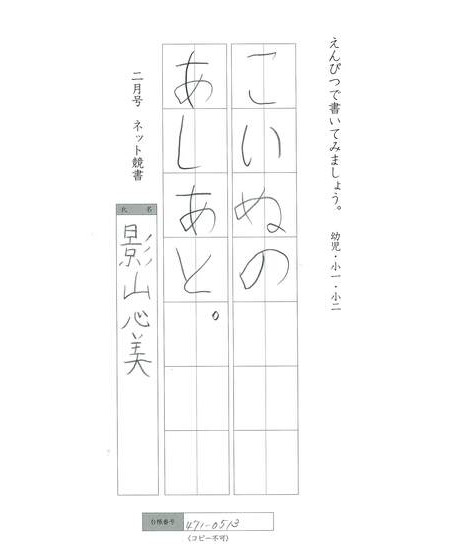 えんぴつで書いてみましょう。 幼児・小一・小二
こいぬの
あしあと。
二月号 ネット競書
氏 名
影山心美
台帳番号 471-0513
(コピー不可)